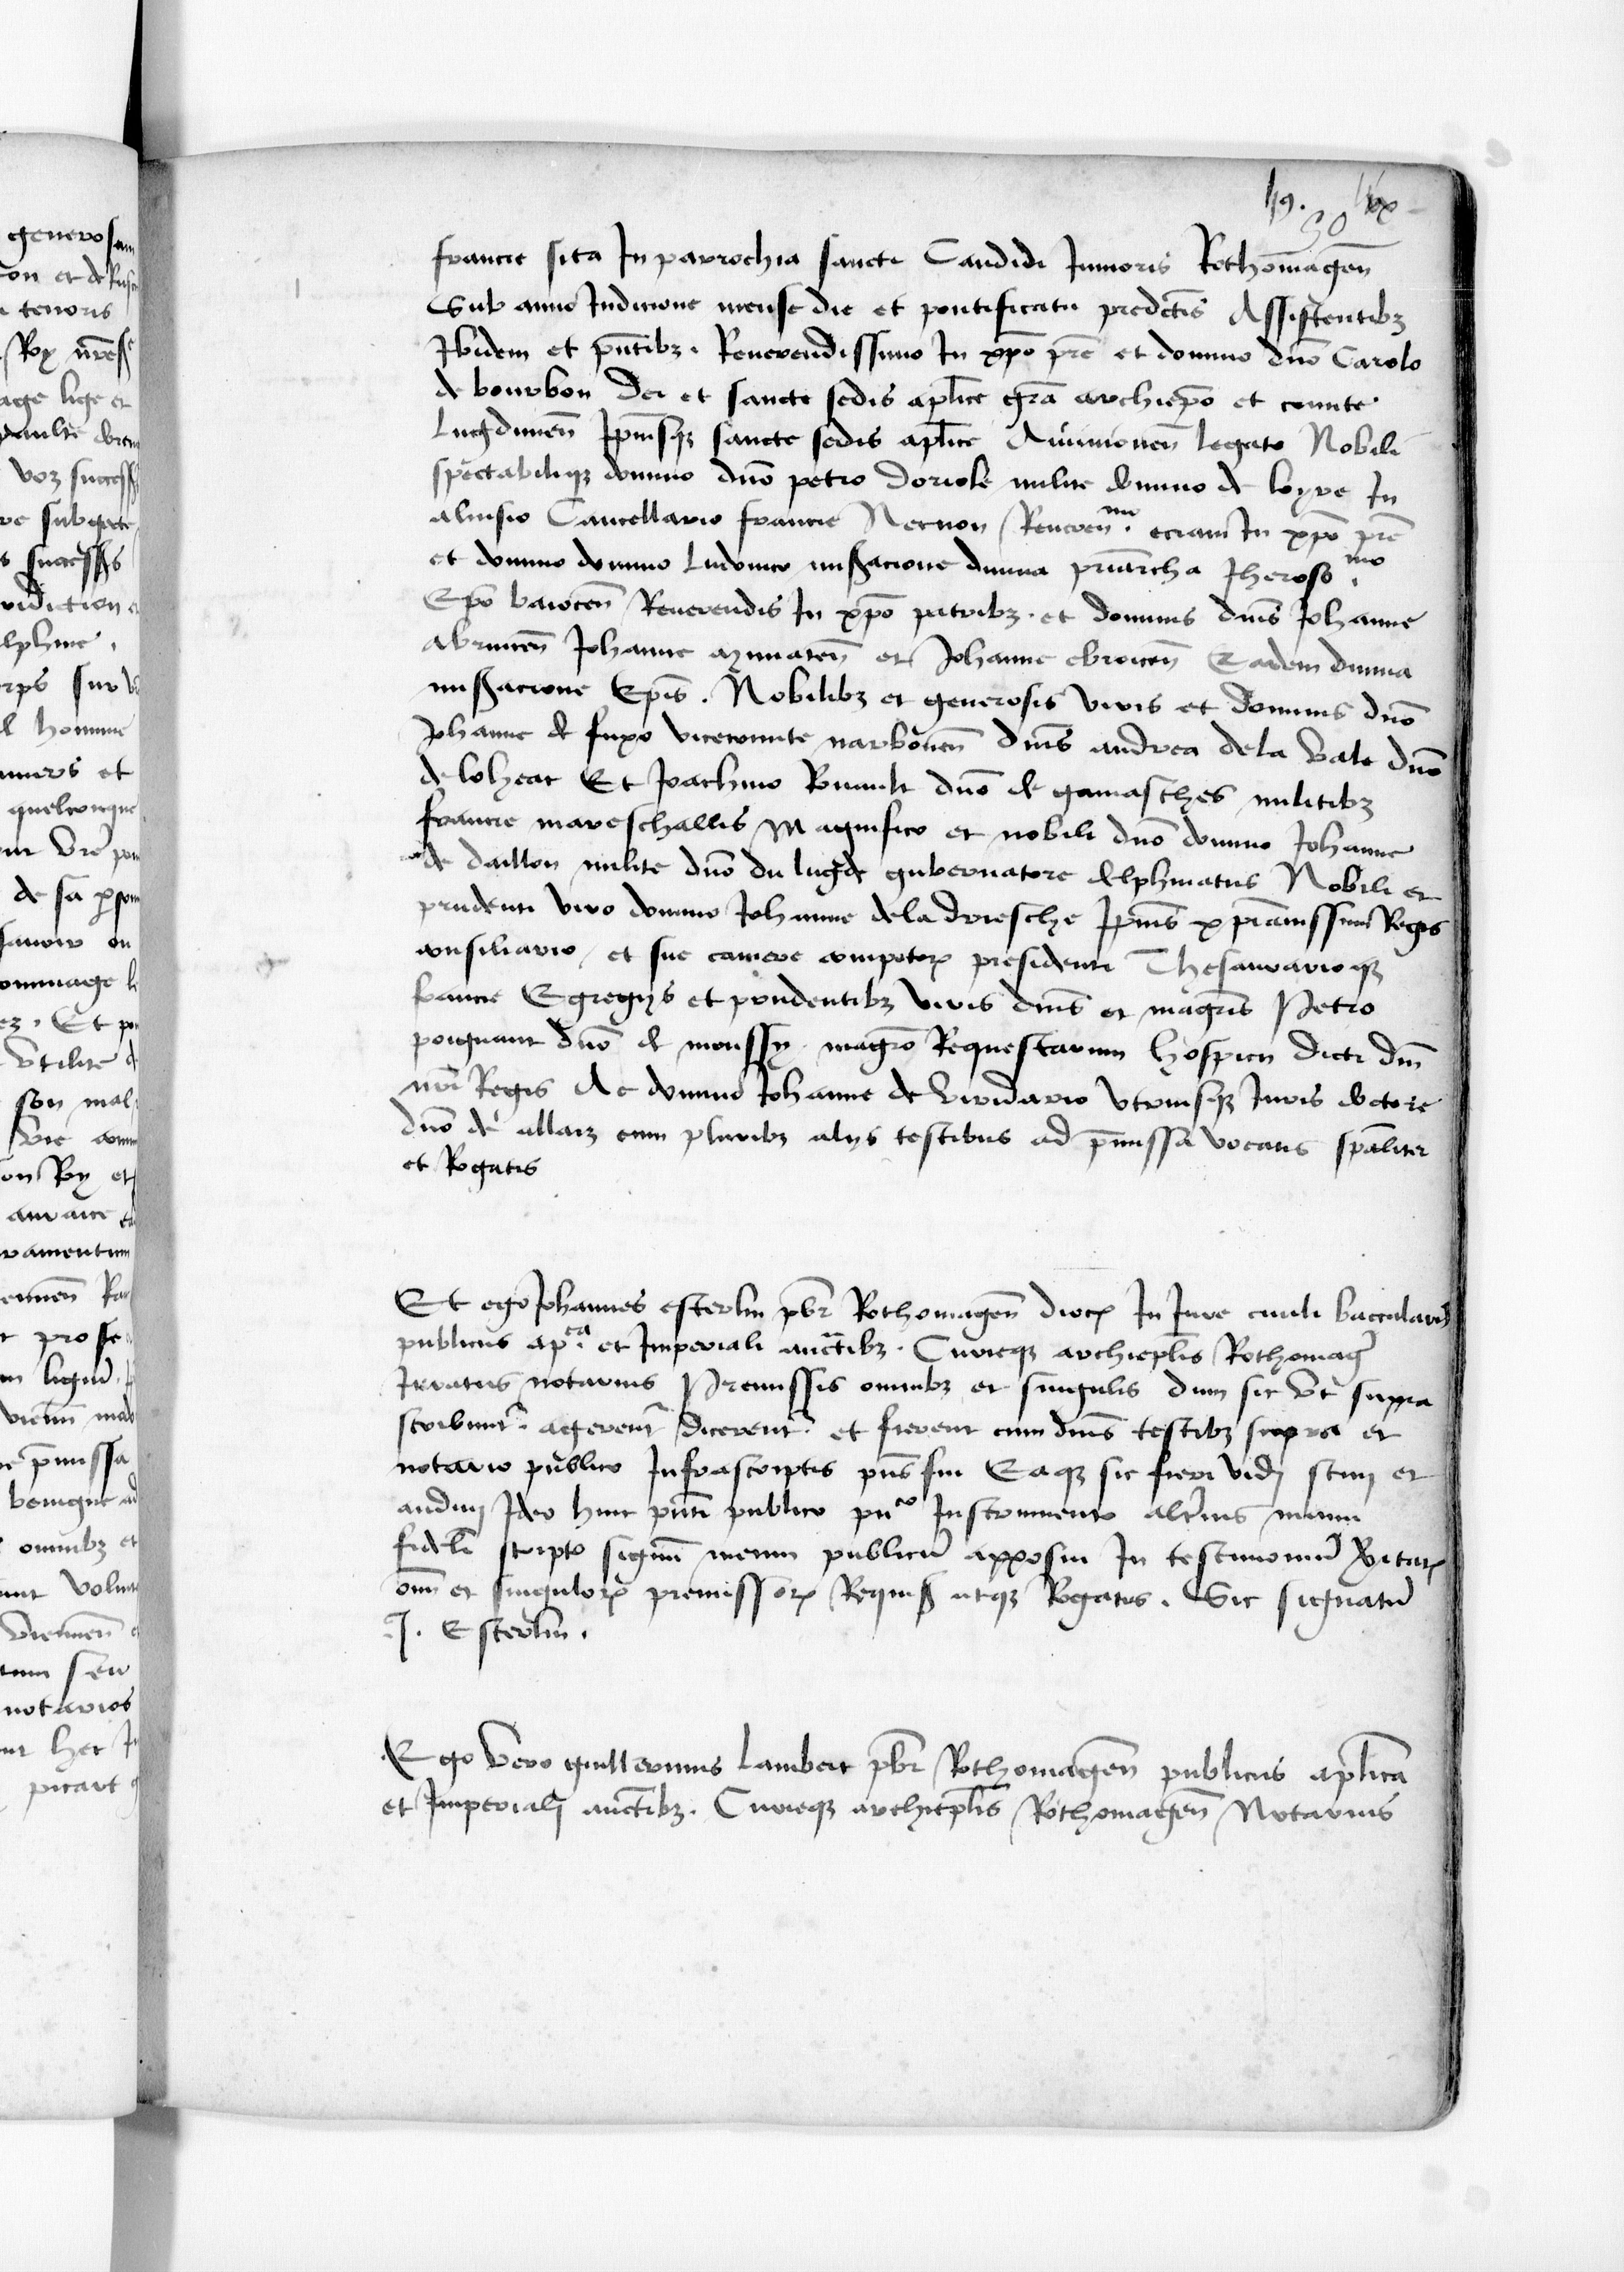 francie sita In parrochia sancti Candidi Iunioris Rothomageñ
Sub anno Indicione mense die et pontificatu predictis Assistentibz
Ibidem et pñtibz. Reuerendissimo In xpõ prẽ et domino dño Carolo
de bourbon Dei et sancte sedis aplice grã archiepõ et comite
Lugduneñ Ipiusqz sancte sedis aplice Auinioneñ legato Nobili
spectabiliqz domino dño petro Doriole milite domino de loyre In
alnisio Cancellario francie Necnon Reueren.mo eciam In xpõ prẽ
et domino domino Ludouico miseracione diuina priarcha Iheroso.mo
Epõ baioceñ Reuerendis In xpõ patribz. et dominis dnis Johanne
abrinceñ Johanne aginateñ et Johanne ebroiceñ Eadem diuina
miseracione Epis. Nobilibz et generosis viris et dominis dño
Johanne de fuxo vicecomite narboneñ dnis andrea de la Vale dño
de loheac Et Joachino Rouault dño de gamasches militibz
francie mareschallis Magnifico et nobili dño domino Johanne
de daillon milite dño du lugde gubernatore delphinatus Nobili et
prudenti viro domino Johanne de la driesche Ipius xpianissimi Regis
consiliario et sue camere compotor presidenti Thesaurarioqz
francie Egregijs et prudentibz viris dnis et magris Petro
poignant dño de moussy. magro Requestarum hospicii dicti dñi
nri Regis Ac domino Johanne de viridario vtriusqz Iuris doctore
dño de allaiz cum pluribz alijs testibus ad pmissa vocatis spaliter
et Rogatis

Et ego Johannes esterlin pbr Rothomageñ dioc In Iure ciuili baccalarius
publicus ap.ca et Imperiali auctibz. Curieqz archieplis Rothomag
Iuratus notarius Premissis omnibz et singulis dum sic vt supra
scribuntr. agerentr dicerentr. et fierent cum dnis testibz supra et
notario publico Infrascriptis pñs fui Eaqz sic fieri vidi sciui et
audiui Ideo huic pñti publico Instrumento alterius manu
fideli scripto signum meum publicum apposui In testimonium veritat
omi et singulor premissor Requis atqz Rogatus. Sic signatum
J. Esterlin.

Ego vero guillermus Lambert pbr Rothomageñ publicus aplica
et Imperiali auctibz. Curieqz archieplis Rothomageñ Notarius